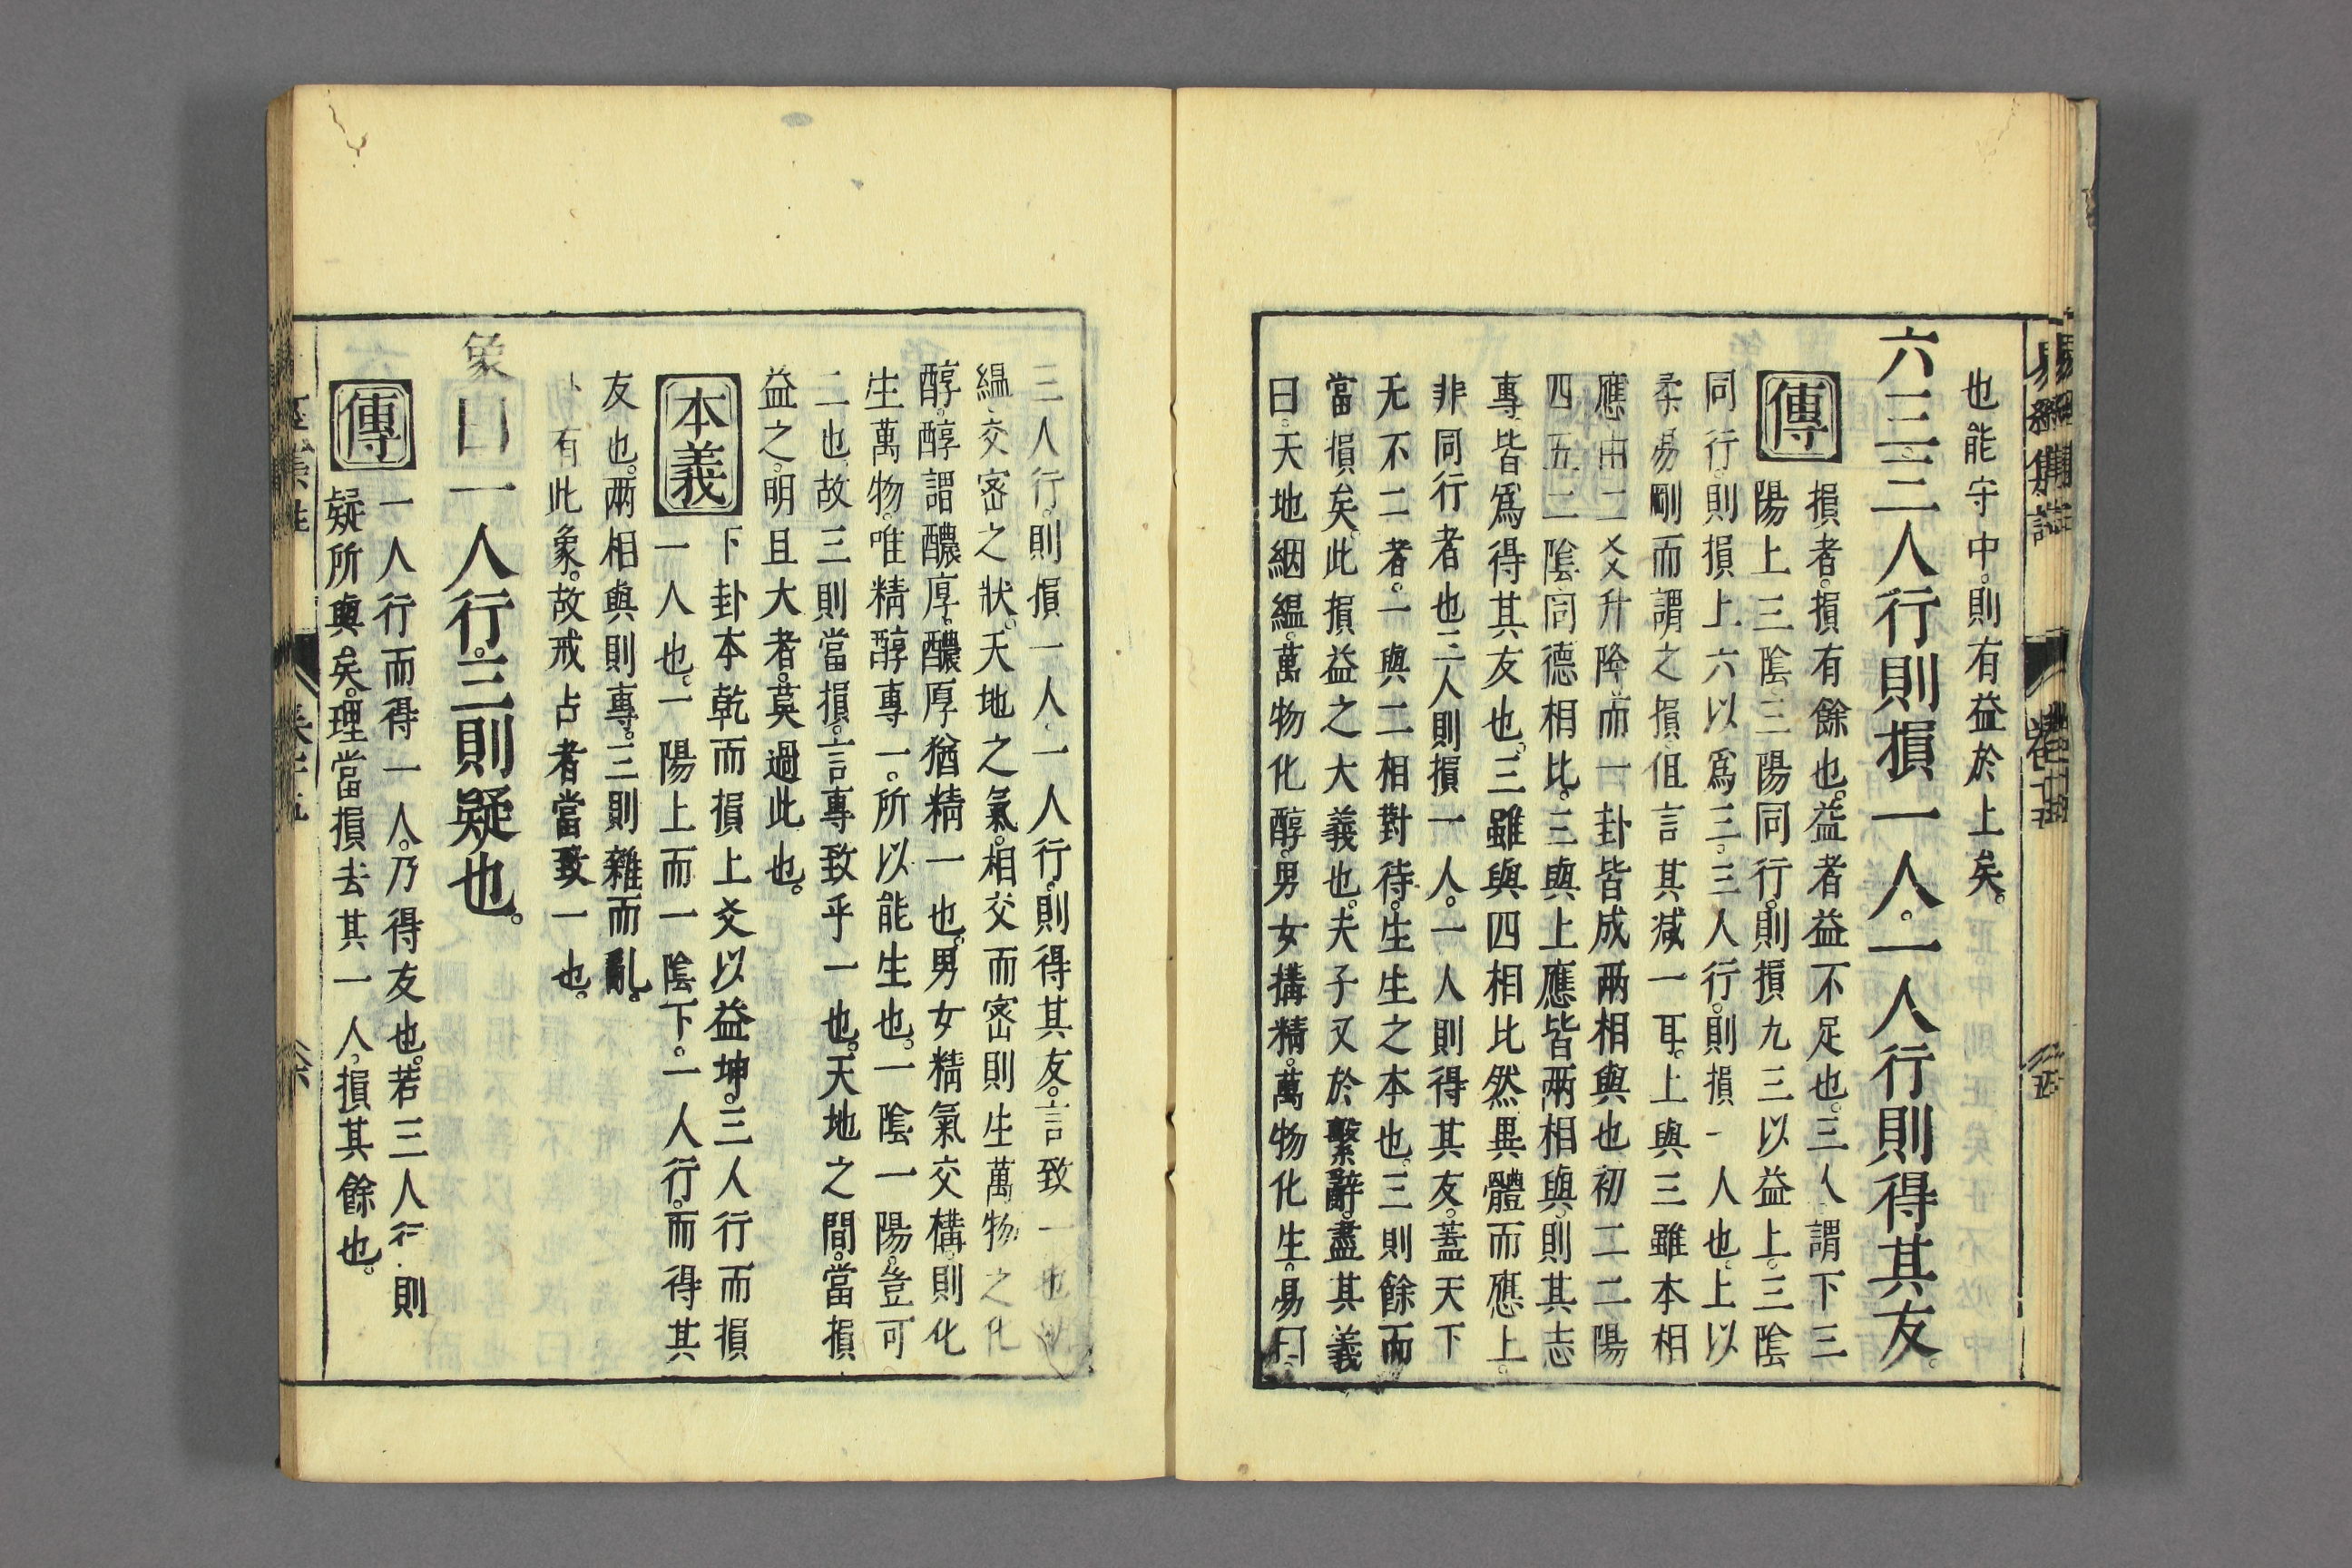 易經集註
卷十五
也能守中。則有益於上矣。
六三三人行則損一人。一人行則得其友。
傳 損者。損有餘也。益者益不足也。三人謂下三
陽上三陰三陽同行。則損九三以益上。三陰
同行。則損上六以爲三。三人行。則損一人也。上以
柔易剛而謂之損。但言其減一耳。上與三雖本相
應由二爻升降而一卦皆成兩相與也初二二陽
四五二陰同德相比。三與上應皆兩相與。則其志
專。皆爲得其友也。三雖與四相比然異體而應上。
非同行者也三人則損一人。一人則得其友。蓋天下
无不二者。一與二相對待。生生之本也。三則餘而
當損矣。此損益之大義也。夫子又於繫辭。盡其義
曰。天地絪縕。萬物化醇。男女搆精。萬物化生。易曰。
三人行。則損一人。一人行。則得其友。言致一也
縕交密之狀。天地之氣。相交而密則生萬物之化
醇。醇謂醲厚。醲厚猶精一也。男女精氣交構。則化
生萬物。唯精醇專一。所以能生也。一陰一陽。豈可
二也。故三則當損。言專致乎一也。天地之間。當損
益之。明且大者。莫過此也。
本義 下卦本乾而損上爻以益坤。三人行而損
一人也。一陽上而一陰下。一人行。而得其
友也。兩相與則專。三則雜而亂。
卜有此象。故戒占者當致一也。
象曰一人行。三則疑也。
傳 一人行而得一人。乃得友也。若三人行則
疑所與矣。理當損去其一人。損其餘也。